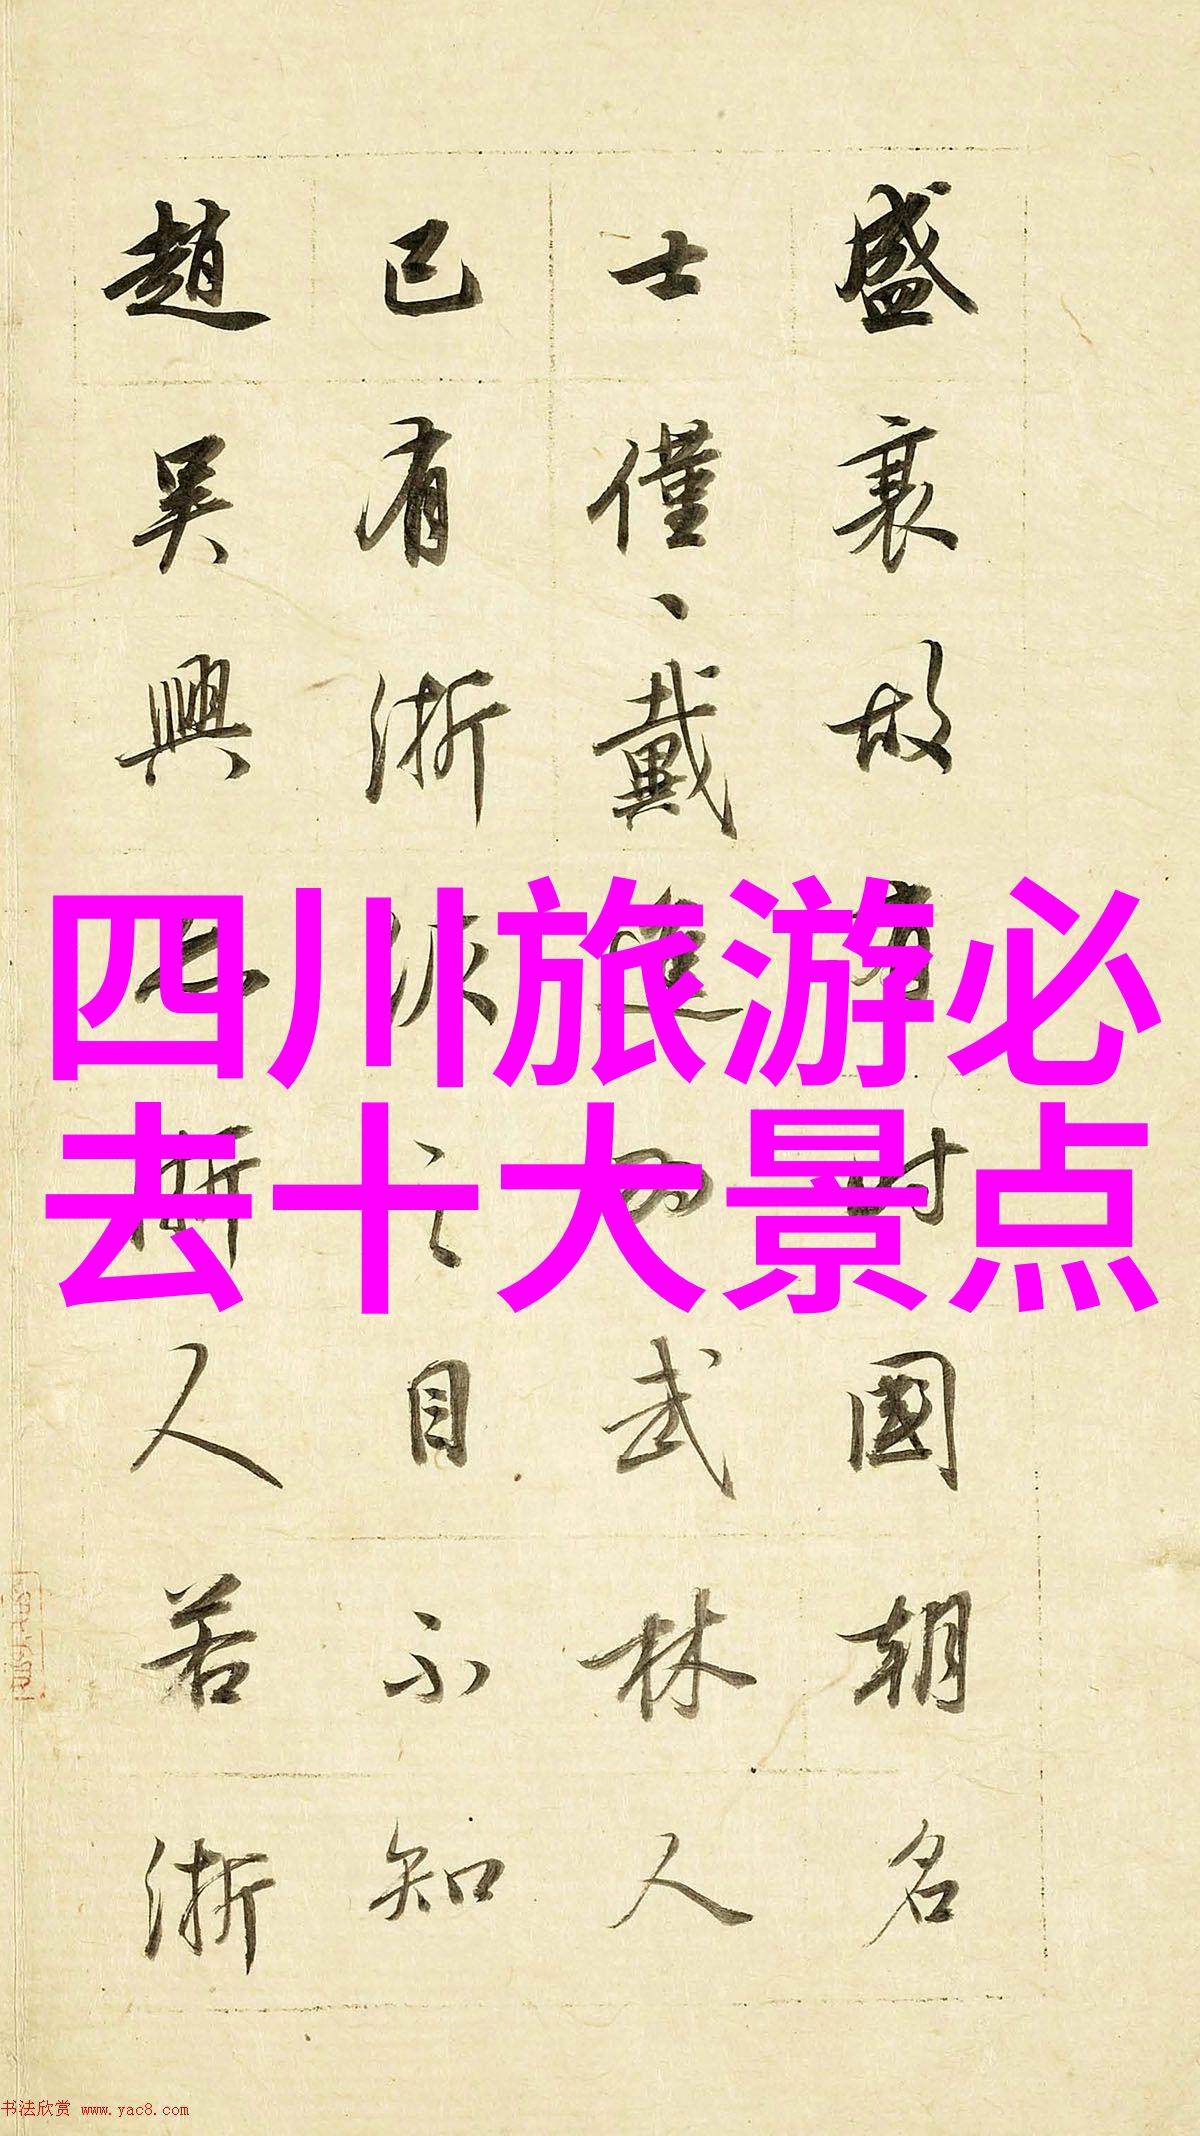 盛衰故有時國朝名
士僅、戴進為武林人
已有浙派之目不知
趙吳興亦浙人若浙
四川旅游必
去十大景点
书法欣赏 www.yac8.com